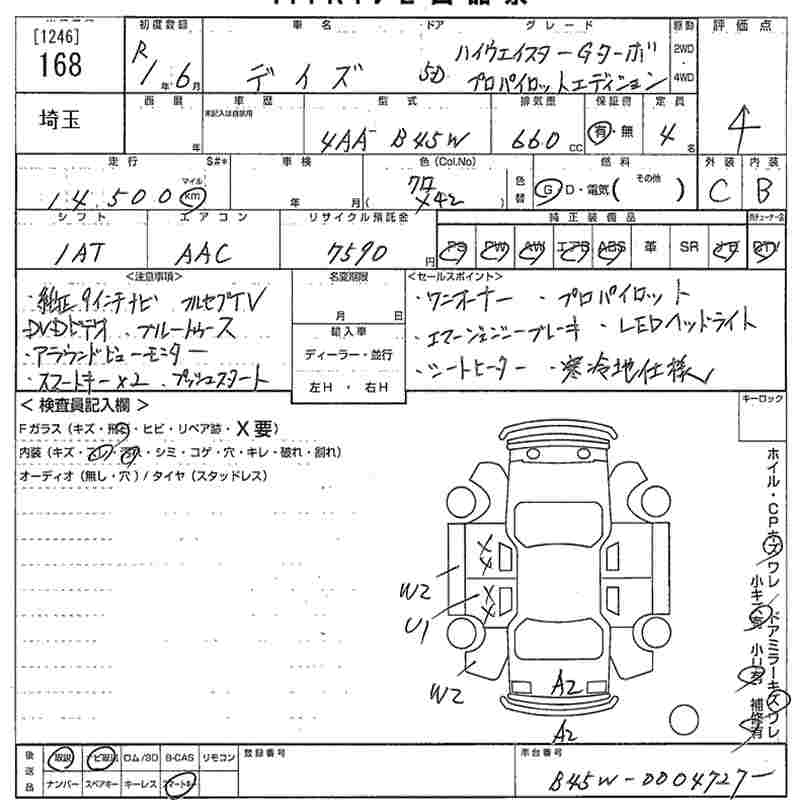 [1246]
168
埼玉
初度登録
R 1年 6月
車名 ドア グレード
デイズ 5D ハイウェイスターGターボ
プロパイロットエディション
原動
2WD
・
4WD
評価点
4
西暦 年
車歴
未記入は自家用
型式
4AA- B45W
排気量
660 cc
保証書
有・無
定員
4名
走行 S#*
14,500 マイル km
車検
年 月
色 (Col.No)
クロ
( X42 )
色替
燃料
G D・電気( その他 )
外装
C
内装
B
シフト
1AT
エアコン
AAC
リサイクル預託金
7590円
純正装備品
PS PW AW エアB ABS 革 SR ナビ DTV
<注意事項>
・純正9インチナビ フルセグTV
DVDビデオ ・ブルートゥース
・アラウンドビューモニター
・スマートキーx2 ・プッシュスタート
名変期限
月 日
輸入車
ディーラー・並行
左H ・ 右H
<セールスポイント>
・ワンオーナー ・プロパイロット
・エマージェンシーブレーキ ・LEDヘッドライト
・シートヒーター ・寒冷地仕様
< 検査員記入欄 >
Fガラス (キズ・飛石・ヒビ・リペア跡・X要)
内装 (キズ・スレ・汚れ・シミ・コゲ・穴・キレ・破れ・割れ)
オーディオ (無し・穴) / タイヤ (スタッドレス)
キーロック
ホイル・CPキズ ワレ / ドアミラーキズ ワレ
小キズ有 小凹有 補修有
X
X
W2
X
X
U1
W2
A2
A2
後送品
取説 ナビ取説 ロム/SD B-CAS リモコン
ナンバー スペアキー キーレス スマートキー
登録番号
車台番号
B45W-0004727